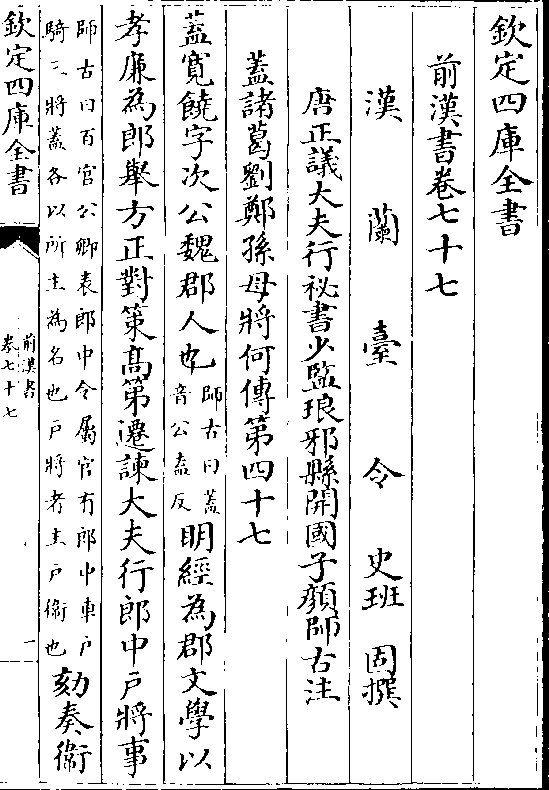 欽定四庫全書
前漢書卷七十七
漢蘭臺令史班固撰
唐正議大夫行祕書少監琅邪縣開國子顔師古注
蓋諸葛劉鄭孫毋將何傳第四十七
蓋寛饒字次公魏郡人也師古曰蓋音公盍反明經為郡文學以
孝廉為郎舉方正對策高第遷諫大夫行郎中户將事
師古曰百官公卿表郎中令屬官有郎中車户騎三將蓋各以所主為名也户將者主户衞也劾奏衞
欽定四庫全書
前漢書
卷七十七
一